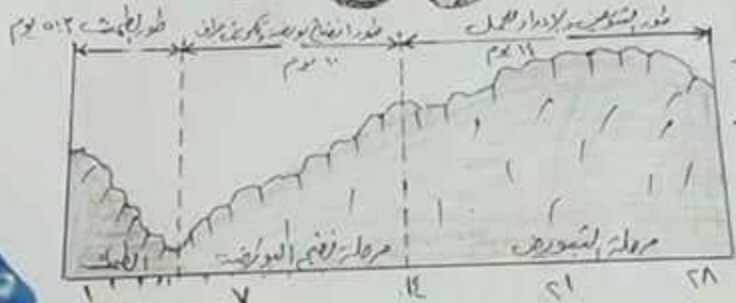 طور الطمث ٣:٥ يوم
طور انضاج البويضة وتكوين جراف
١٠ يوم
طور التبويض والاعداد للحمل
١٤ يوم
الطمث
مرحلة نضج البويضة
مرحلة التبويض
١ ٧ ١٤ ٢١ ٢٨